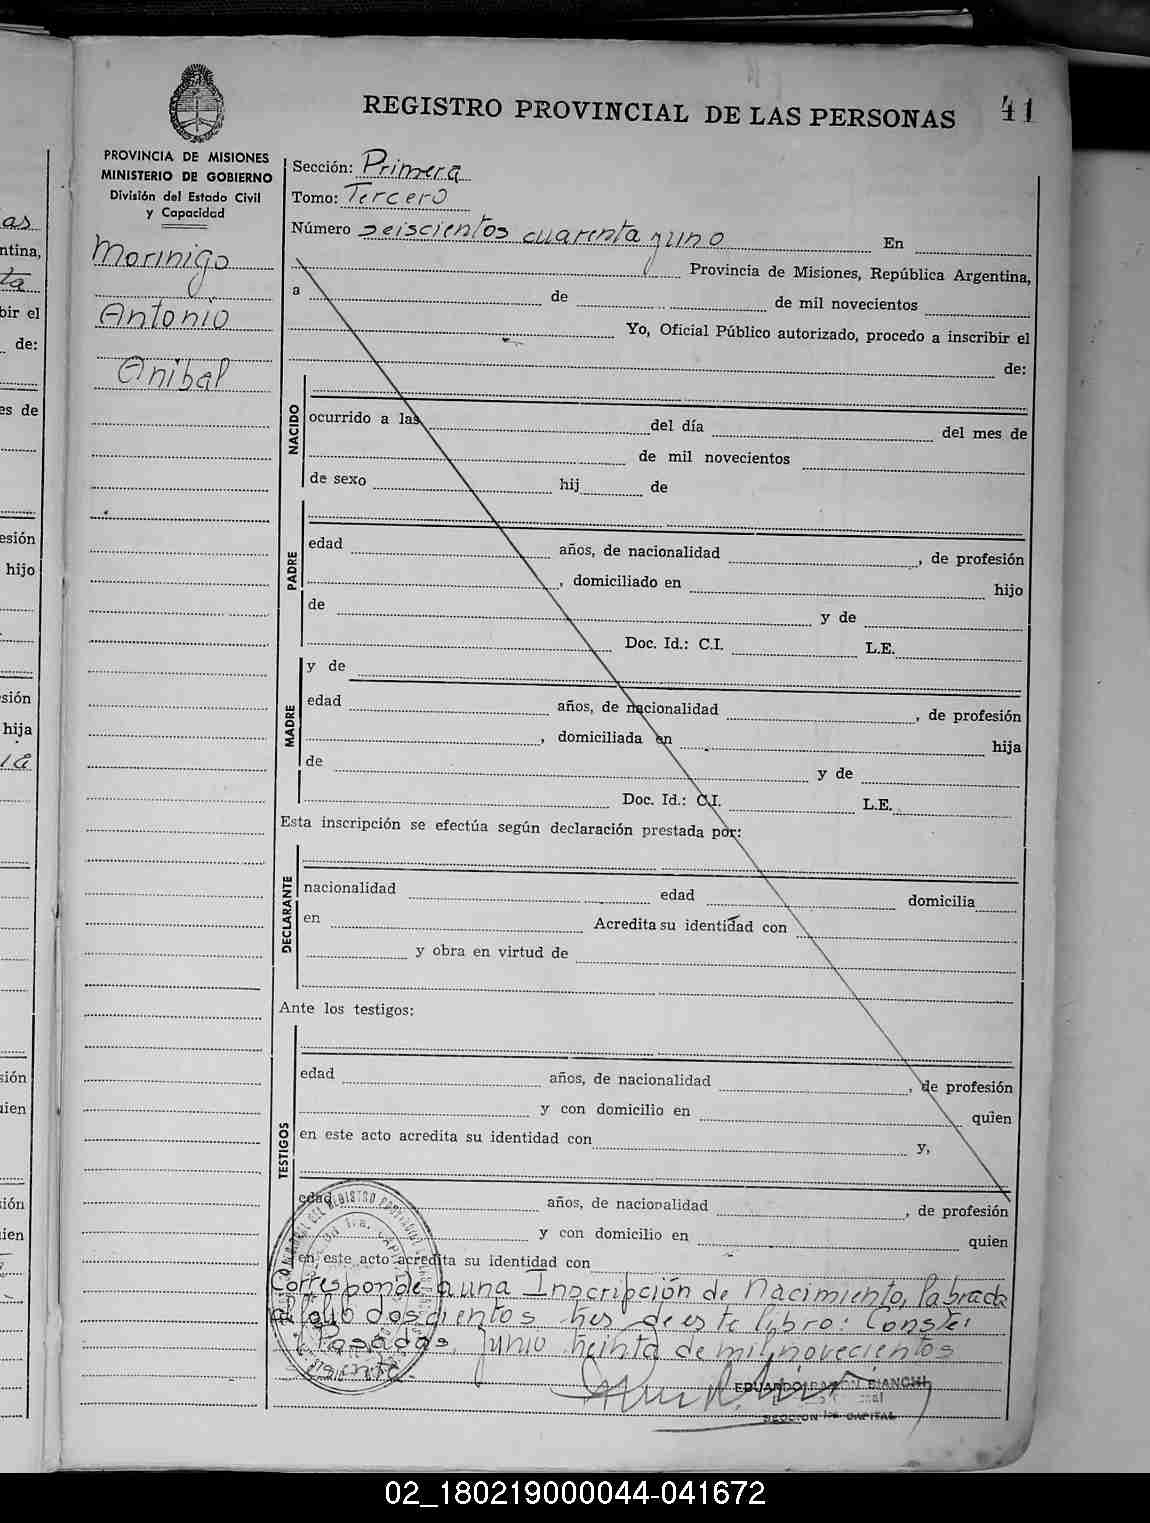 41
REGISTRO PROVINCIAL DE LAS PERSONAS
PROVINCIA DE MISIONES
MINISTERIO DE GOBIERNO
División del Estado Civil
y Capacidad
Morinigo
Antonio
Anibal
Sección: Primera
Tomo: Tercero
Número seiscientos cuarenta y uno En
Provincia de Misiones, República Argentina,
a de de mil novecientos
Yo, Oficial Público autorizado, procedo a inscribir el
de:
NACIDO
ocurrido a las del día del mes de
de mil novecientos
de sexo hij de
PADRE
edad años, de nacionalidad , de profesión
, domiciliado en hijo
de y de
Doc. Id.: C.I. L.E.
MADRE
y de
edad años, de nacionalidad , de profesión
, domiciliada en hija
de y de
Doc. Id.: C.I. L.E.
Esta inscripción se efectúa según declaración prestada por:
DECLARANTE
nacionalidad edad domicilia
en Acredita su identidad con
y obra en virtud de
Ante los testigos:
TESTIGOS
edad años, de nacionalidad , de profesión
y con domicilio en quien
en este acto acredita su identidad con y,
edad años, de nacionalidad , de profesión
y con domicilio en quien
en este acto acredita su identidad con
Corresponde a una Inscripción de Nacimiento, labrada
a folio doscientos tres de este libro: Conste:
Posadas, Junio treinta de mil novecientos
sesenta
EDUARDO RAMON BIANCHI
SECCION 1ra CAPITAL
02_180219000044-041672